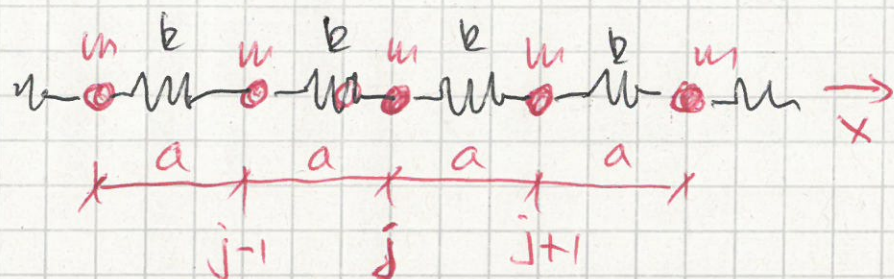 m k m k m k m k m
x
a a a a
j-1 j j+1